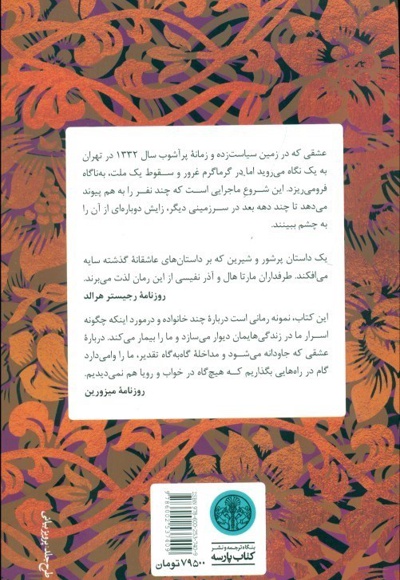 عشقی که در زمین سیاست‌زده و زمانهٔ پرآشوب سال ۱۳۳۲ در تهران
به یک نگاه می‌روید اما در گرماگرم غرور و سقوط یک ملت، به‌ناگاه
فرومی‌ریزد. این شروع ماجرایی است که چند نفر را به هم پیوند
می‌دهد تا چند دهه بعد در سرزمینی دیگر، زایش دوباره‌ای از آن را
به چشم ببینند.
یک داستان پرشور و شیرین که بر داستان‌های عاشقانهٔ گذشته سایه
می‌افکند. طرفداران مارتا هال و آذر نفیسی از این رمان لذت می‌برند.
روزنامهٔ رجیستر هرالد
این کتاب، نمونه رمانی است دربارهٔ چند خانواده و درمورد اینکه چگونه
اسرار ما در زندگی‌هایمان دیوار می‌سازد و ما را بیمار می‌کند. دربارهٔ
عشقی که جاودانه می‌شود و مداخلهٔ گاه‌به‌گاه تقدیر، ما را وامی‌دارد
گام در راه‌هایی بگذاریم که هیچ‌گاه در خواب و رویا هم نمی‌دیدیم.
روزنامهٔ میزورین
بنگاه ترجمه و نشر
کتاب پارسه
۷۹۵۰۰ تومان
طرح جلد: پرویز بیانی